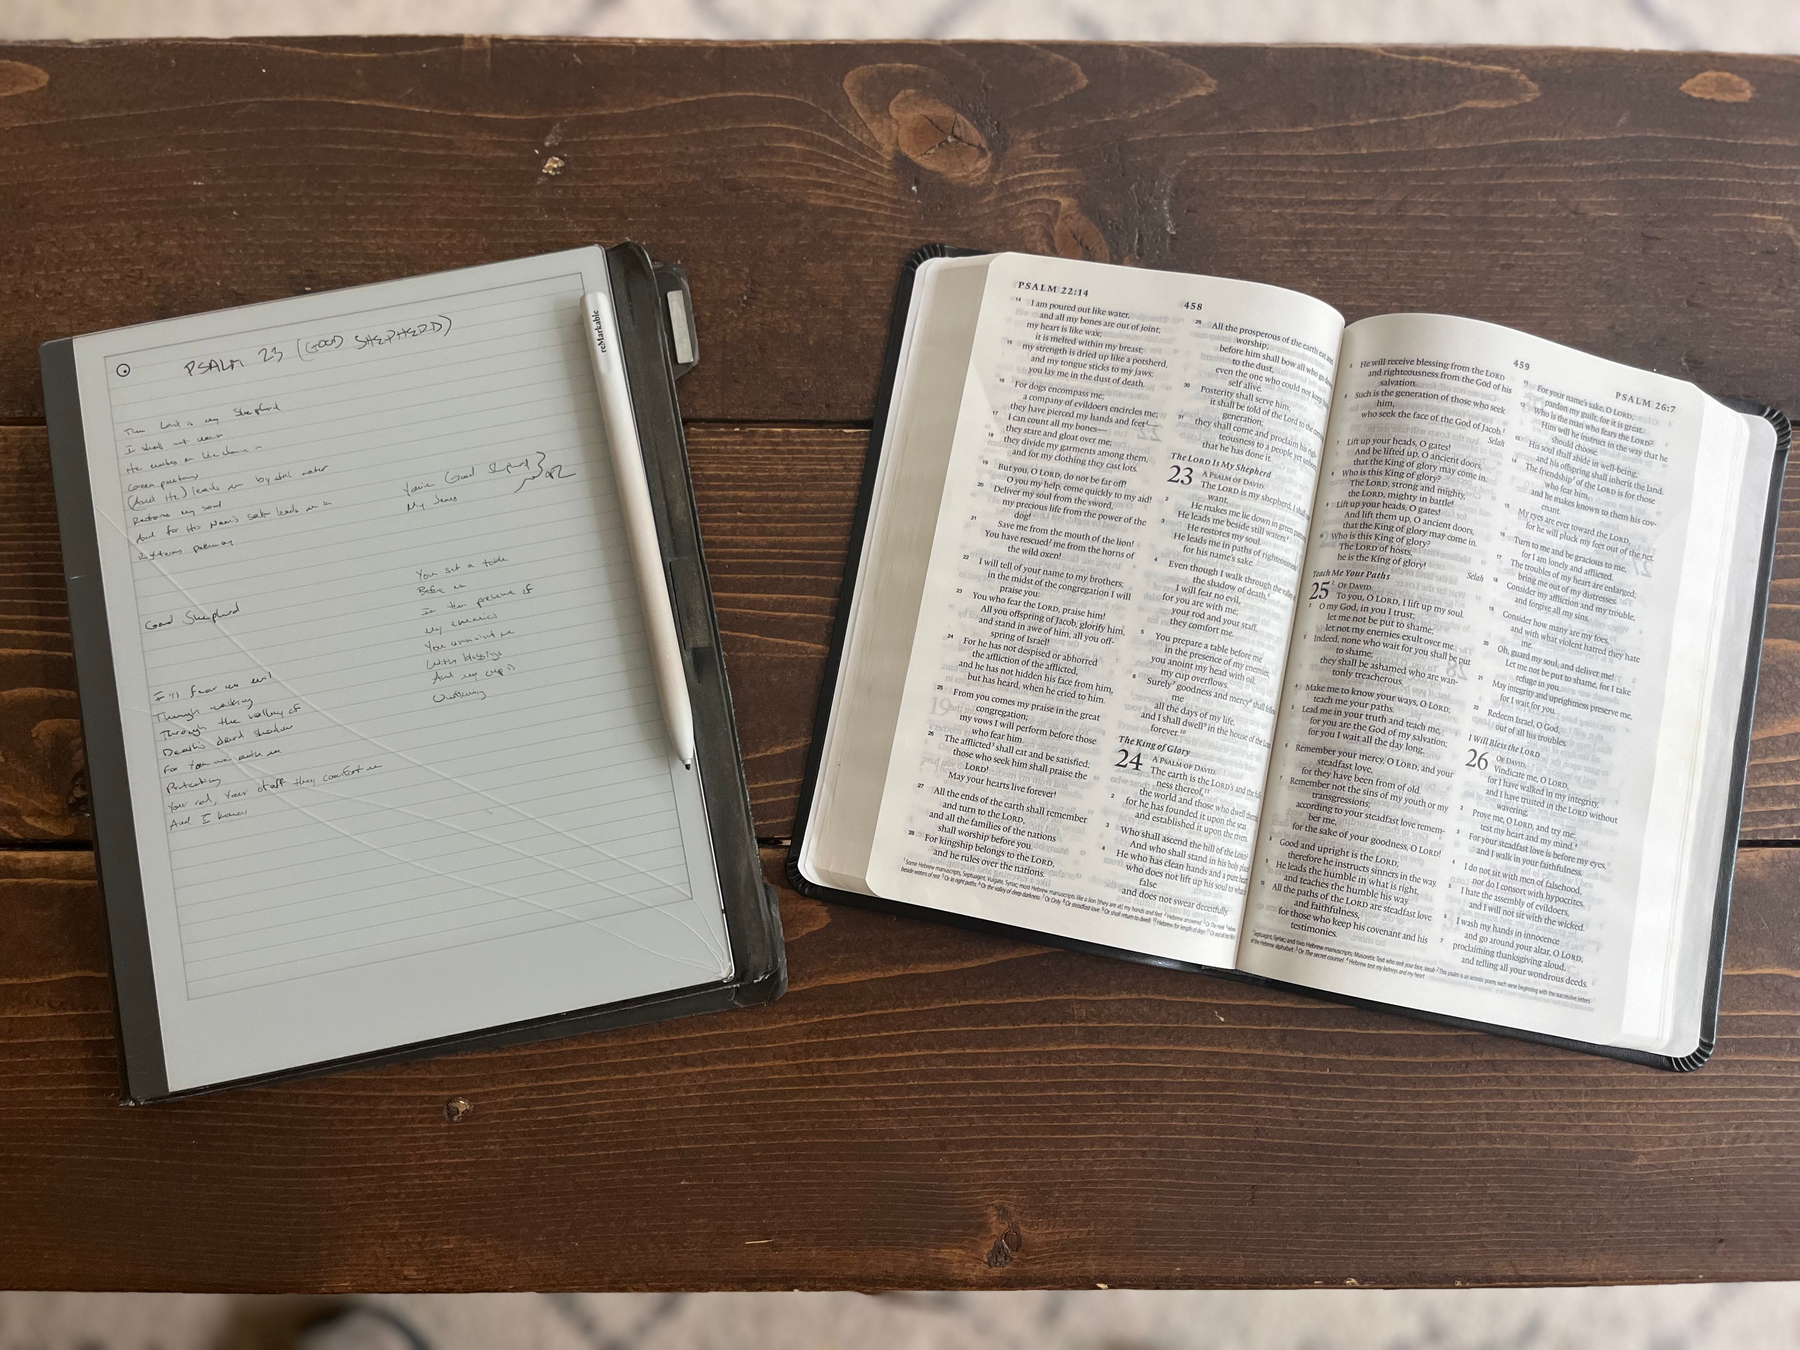 PSALM 23 (GOOD SHEPHERD)
The Lord is my Shepherd
I shall not want
He makes me lie down in
Green pastures
(And He) leads me by still water
Restores my soul
And for His Name's sake leads me in
Righteous pathway
Good Shepherd
I'll fear no evil
Though walking
Through the valley of
Death's dark shadow
For You are with me
Protecting
Your rod, Your staff they comfort me
And I know
You're Good Shepherd
My Jesus
You set a table
Before me
In the presence of
My enemies
You anoint me
With blessings
And my cup is
Overflowing
reMarkable
PSALM 22:14
458
14 I am poured out like water,
and all my bones are out of joint;
my heart is like wax;
it is melted within my breast;
15 my strength is dried up like a potsherd,
and my tongue sticks to my jaws;
you lay me in the dust of death.
16 For dogs encompass me;
a company of evildoers encircles me;
they have pierced my hands and feet
17 I can count all my bones—
they stare and gloat over me;
18 they divide my garments among them,
and for my clothing they cast lots.
19 But you, O LORD, do not be far off!
O you my help, come quickly to my aid!
20 Deliver my soul from the sword,
my precious life from the power of the
dog!
21 Save me from the mouth of the lion!
You have rescued me from the horns of
the wild oxen!
22 I will tell of your name to my brothers;
in the midst of the congregation I will
praise you:
23 You who fear the LORD, praise him!
All you offspring of Jacob, glorify him,
and stand in awe of him, all you off-
spring of Israel!
24 For he has not despised or abhorred
the affliction of the afflicted,
and he has not hidden his face from him,
but has heard, when he cried to him.
25 From you comes my praise in the great
congregation;
my vows I will perform before those
who fear him.
26 The afflicted shall eat and be satisfied;
those who seek him shall praise the
LORD!
May your hearts live forever!
27 All the ends of the earth shall remember
and turn to the LORD,
and all the families of the nations
shall worship before you.
28 For kingship belongs to the LORD,
and he rules over the nations.
29 All the prosperous of the earth eat and
worship;
before him shall bow all who go
to the dust,
even the one who could not keep
self alive.
30 Posterity shall serve him;
it shall be told of the Lord to the
generation;
31 they shall come and proclaim his righ
teousness to a people yet unborn,
that he has done it.
The LORD Is My Shepherd
23 A PSALM OF DAVID.
The LORD is my shepherd; I shall
want.
2 He makes me lie down in green
He leads me beside still waters.
3 He restores my soul.
He leads me in paths of righteousness
for his name's sake.
4 Even though I walk through the valley
the shadow of death,
I will fear no evil,
for you are with me;
your rod and your staff,
they comfort me.
5 You prepare a table before me
in the presence of my enemies;
you anoint my head with oil;
my cup overflows.
6 Surely goodness and mercy shall
me
all the days of my life,
and I shall dwell in the house of the
forever.
The King of Glory
24 A PSALM OF DAVID.
The earth is the LORD's and the
ness thereof,
the world and those who dwell
2 for he has founded it upon the seas
and established it upon the rivers.
3 Who shall ascend the hill of the LORD?
And who shall stand in his holy
4 He who has clean hands and a pure
who does not lift up his soul to what
false
and does not swear deceitfully
459
PSALM 26:7
5 He will receive blessing from the LORD
and righteousness from the God of his
salvation.
6 Such is the generation of those who seek
him,
who seek the face of the God of Jacob.
Selah
7 Lift up your heads, O gates!
And be lifted up, O ancient doors,
that the King of glory may come in.
8 Who is this King of glory?
The LORD, strong and mighty,
the LORD, mighty in battle!
9 Lift up your heads, O gates!
And lift them up, O ancient doors,
that the King of glory may come in.
10 Who is this King of glory?
The LORD of hosts,
he is the King of glory!
Selah
Teach Me Your Paths
25 OF DAVID.
To you, O LORD, I lift up my soul.
2 O my God, in you I trust;
let me not be put to shame;
let not my enemies exult over me.
3 Indeed, none who wait for you shall be put
to shame;
they shall be ashamed who are wan-
tonly treacherous.
4 Make me to know your ways, O LORD;
teach me your paths.
5 Lead me in your truth and teach me,
for you are the God of my salvation;
for you I wait all the day long.
6 Remember your mercy, O LORD, and your
steadfast love,
for they have been from of old.
7 Remember not the sins of my youth or my
transgressions;
according to your steadfast love remem-
ber me,
for the sake of your goodness, O LORD!
8 Good and upright is the LORD;
therefore he instructs sinners in the way.
9 He leads the humble in what is right,
and teaches the humble his way.
10 All the paths of the LORD are steadfast love
and faithfulness,
for those who keep his covenant and his
testimonies.
11 For your name's sake, O LORD,
pardon my guilt, for it is great.
12 Who is the man who fears the LORD?
Him will he instruct in the way that he
should choose.
13 His soul shall abide in well-being,
and his offspring shall inherit the land.
14 The friendship of the LORD is for those
who fear him,
and he makes known to them his cov-
enant.
15 My eyes are ever toward the LORD,
for he will pluck my feet out of the net.
16 Turn to me and be gracious to me,
for I am lonely and afflicted.
17 The troubles of my heart are enlarged;
bring me out of my distresses.
18 Consider my affliction and my trouble,
and forgive all my sins.
19 Consider how many are my foes,
and with what violent hatred they hate
me.
20 Oh, guard my soul, and deliver me!
Let me not be put to shame, for I take
refuge in you.
21 May integrity and uprightness preserve me,
for I wait for you.
22 Redeem Israel, O God,
out of all his troubles.
I Will Bless the LORD
26 OF DAVID.
Vindicate me, O LORD,
for I have walked in my integrity,
and I have trusted in the LORD without
wavering.
2 Prove me, O LORD, and try me;
test my heart and my mind.
3 For your steadfast love is before my eyes,
and I walk in your faithfulness.
4 I do not sit with men of falsehood,
nor do I consort with hypocrites.
5 I hate the assembly of evildoers,
and I will not sit with the wicked.
6 I wash my hands in innocence
and go around your altar, O LORD,
7 proclaiming thanksgiving aloud,
and telling all your wondrous deeds.